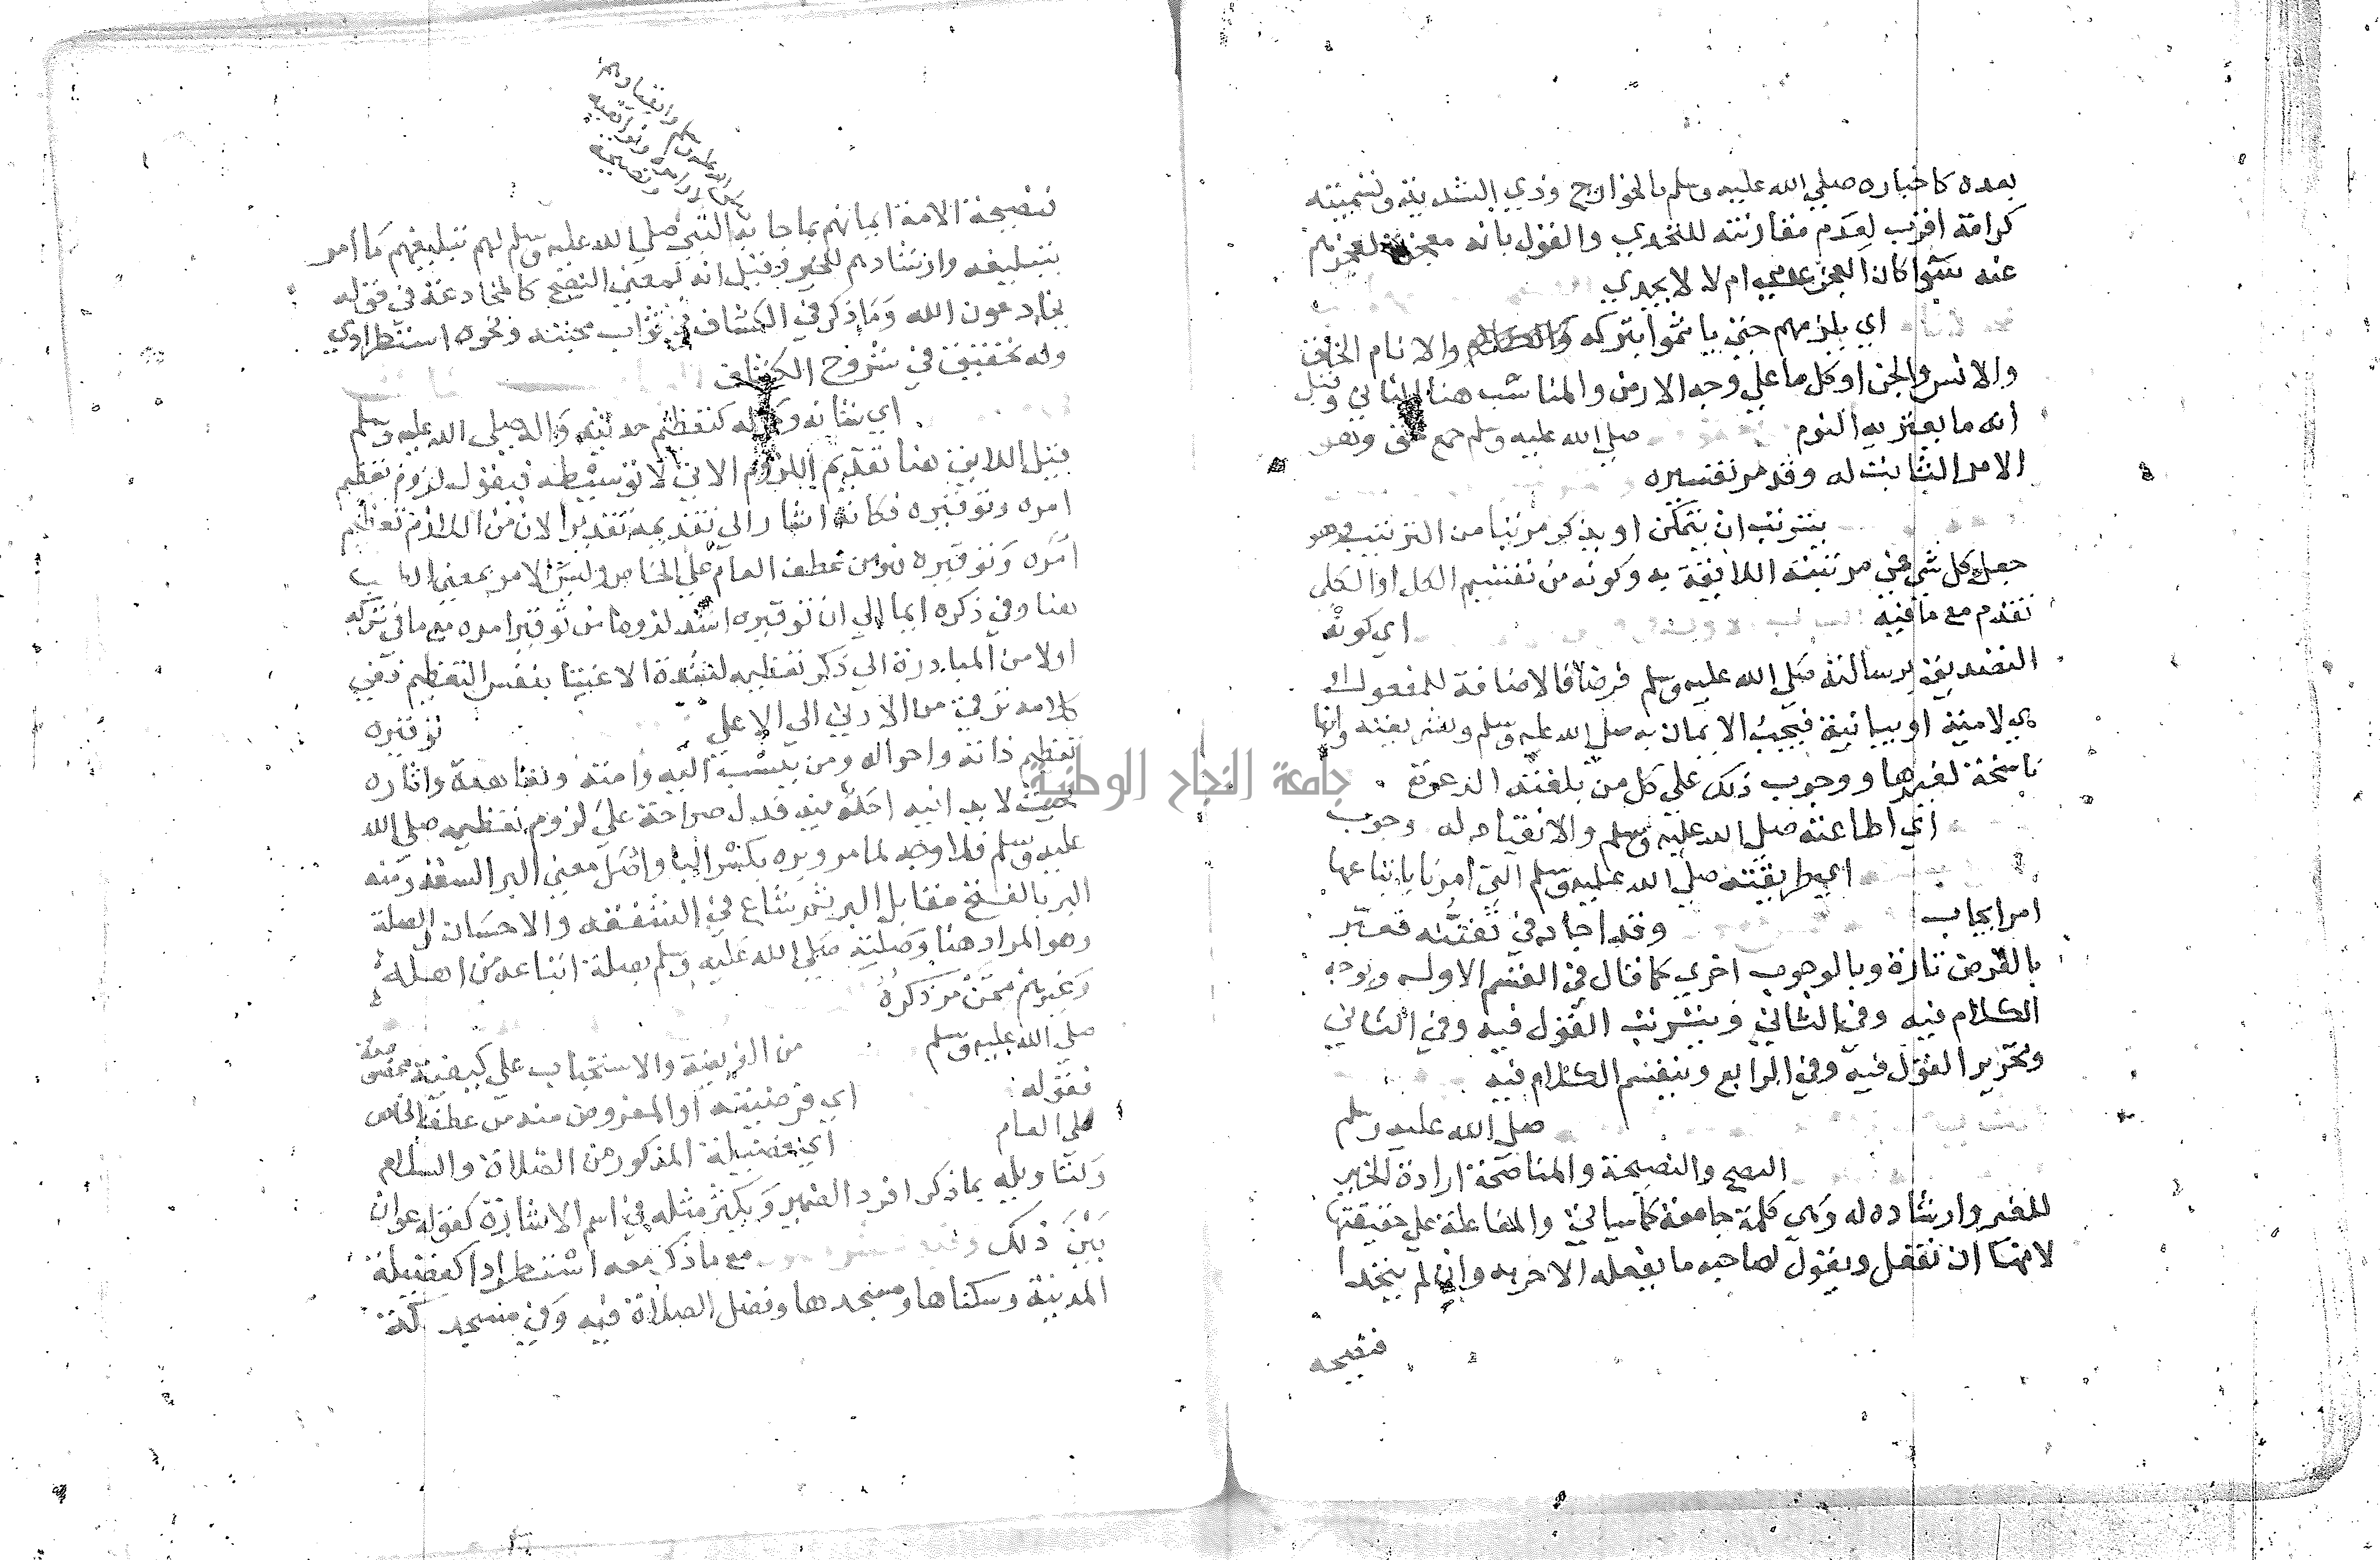 بعده كاخباره صلي الله عليه وسلم بالخوارج وذي الثدية وتسميته
كرامة اقرب لعدم مقارنته للتحدي والقول بانه معجزة لعجزهم
عنه سوا كان العجز عدمي ام لا لا يجدي
اي يلزمهم حتي ياثموا بتركه والانام الخلق
والانس والجن او كل ما علي وجه الارض والمناسب هنا الثاني وقيل
انه ما يعتريه النوم صلي الله عليه وسلم جمع حق وهو
الامر الثابت له وقد مر تفسيره
يترتب ان يتمكن او يذكر مرتبا من الترتيب وهو
جعل كل شي في مرتبته اللايقة به وكونه من تقسيم الكل او الكلي
تقدم مع ما فيه اي كونه
التصديق برسالته صلي الله عليه وسلم فرضا فالاضافة للمفعول
هي لامية او بيانية فيجب الايمان به صلي الله عليه وسلم وبشريعته وانها
ناسخة لغيرها ووجوب ذلك علي كل من بلغته الدعوة
جامعة النجاح الوطنية
اي اطاعته صلي الله عليه وسلم والانقياد له وجوب
اي طريقته صلي الله عليه وسلم التي امرنا باتباعها
امر ايجاب وقد اجاد في تفننه فعبر
بالفرض تارة وبالوجوب اخري كما قال في القسم الاول وتوجه
الكلام فيه وفي الثاني ويترتب القول فيه وفي الثاني
وتحرير القول فيه وفي الرابع وينقسم الكلام فيه
صلي الله عليه وسلم
النصح والنصيحة والمناصحة ارادة الخير
للغير وارشاده له وهي كلمة جامعة كما سياتي والمفاعلة علي حقيقتها
لانها ان تفعل وتقول لصاحبه ما يفعله الاخر به وان لم يتحدا
فنصيحة
فنصيحة الامة ايمانهم بما جا به النبي صلي الله عليه وسلم لهم تبليغهم ما امر
بتبليغه وارشادهم للخير وقيل انه بمعني النصح كالمخادعة في قوله
يخادعون الله وما ذكر في الكشاف في ثواب محبته ونحوه استطرادي
وله تحقيق في شروح الكشاف
اي شانه وحاله كتعظيم حديثه واله صلي الله عليه وسلم
قيل اللايق هنا تقديم اللزوم الاتي لا توسيطه فيقول لزوم تعظيم
امره وتوقيره فكانه اشار الي تقديمه تقديرا لان من اللازم تعظيم
امره وتوقيره فهو من عطف العام علي الخاص وليس الامر بمعني
هنا وفي ذكره ايما الي ان توقيره اشد لزوما من توقير امره مع ما في تركه
اولا من المبادرة الي ذكر تعظيمه لشدة الاعتنا بنفس التعظيم ففي
كلامه ترقي من الادني الي الاعلي توقيره
تعظيم ذاته واحواله ومن ينسب اليه وامته وتعاهده واثاره
بحيث لا يدانيه احد فيه فدل صراحة علي لزوم تعظيمه صلي الله
عليه وسلم فلا وجه لما مر وبره بكسر البا واصل معني البر السعة ومنه
البر بالفتح مقابل البحر ثم شاع في الشفقة والاحسان والصلة
وهو المراد هنا وصلته صلي الله عليه وسلم بصلة اتباعه من اهله
وغيرهم ممن مر ذكره
صلي الله عليه وسلم من الفرضية والاستحباب علي كيفية
فقوله اي فرضيته او المفروض منه من عطف الخاص
علي العام اي فضيلة المذكور من الصلاة والسلام
ولتاويله بما ذكر افرد الضمير ويكثر مثله في اسم الاشارة كقوله عوان
بين ذلك مع ما ذكر معه استطرادا كفضيلة
المدينة وسكناها ومسجدها وفضل الصلاة فيه وفي مسجد مكة